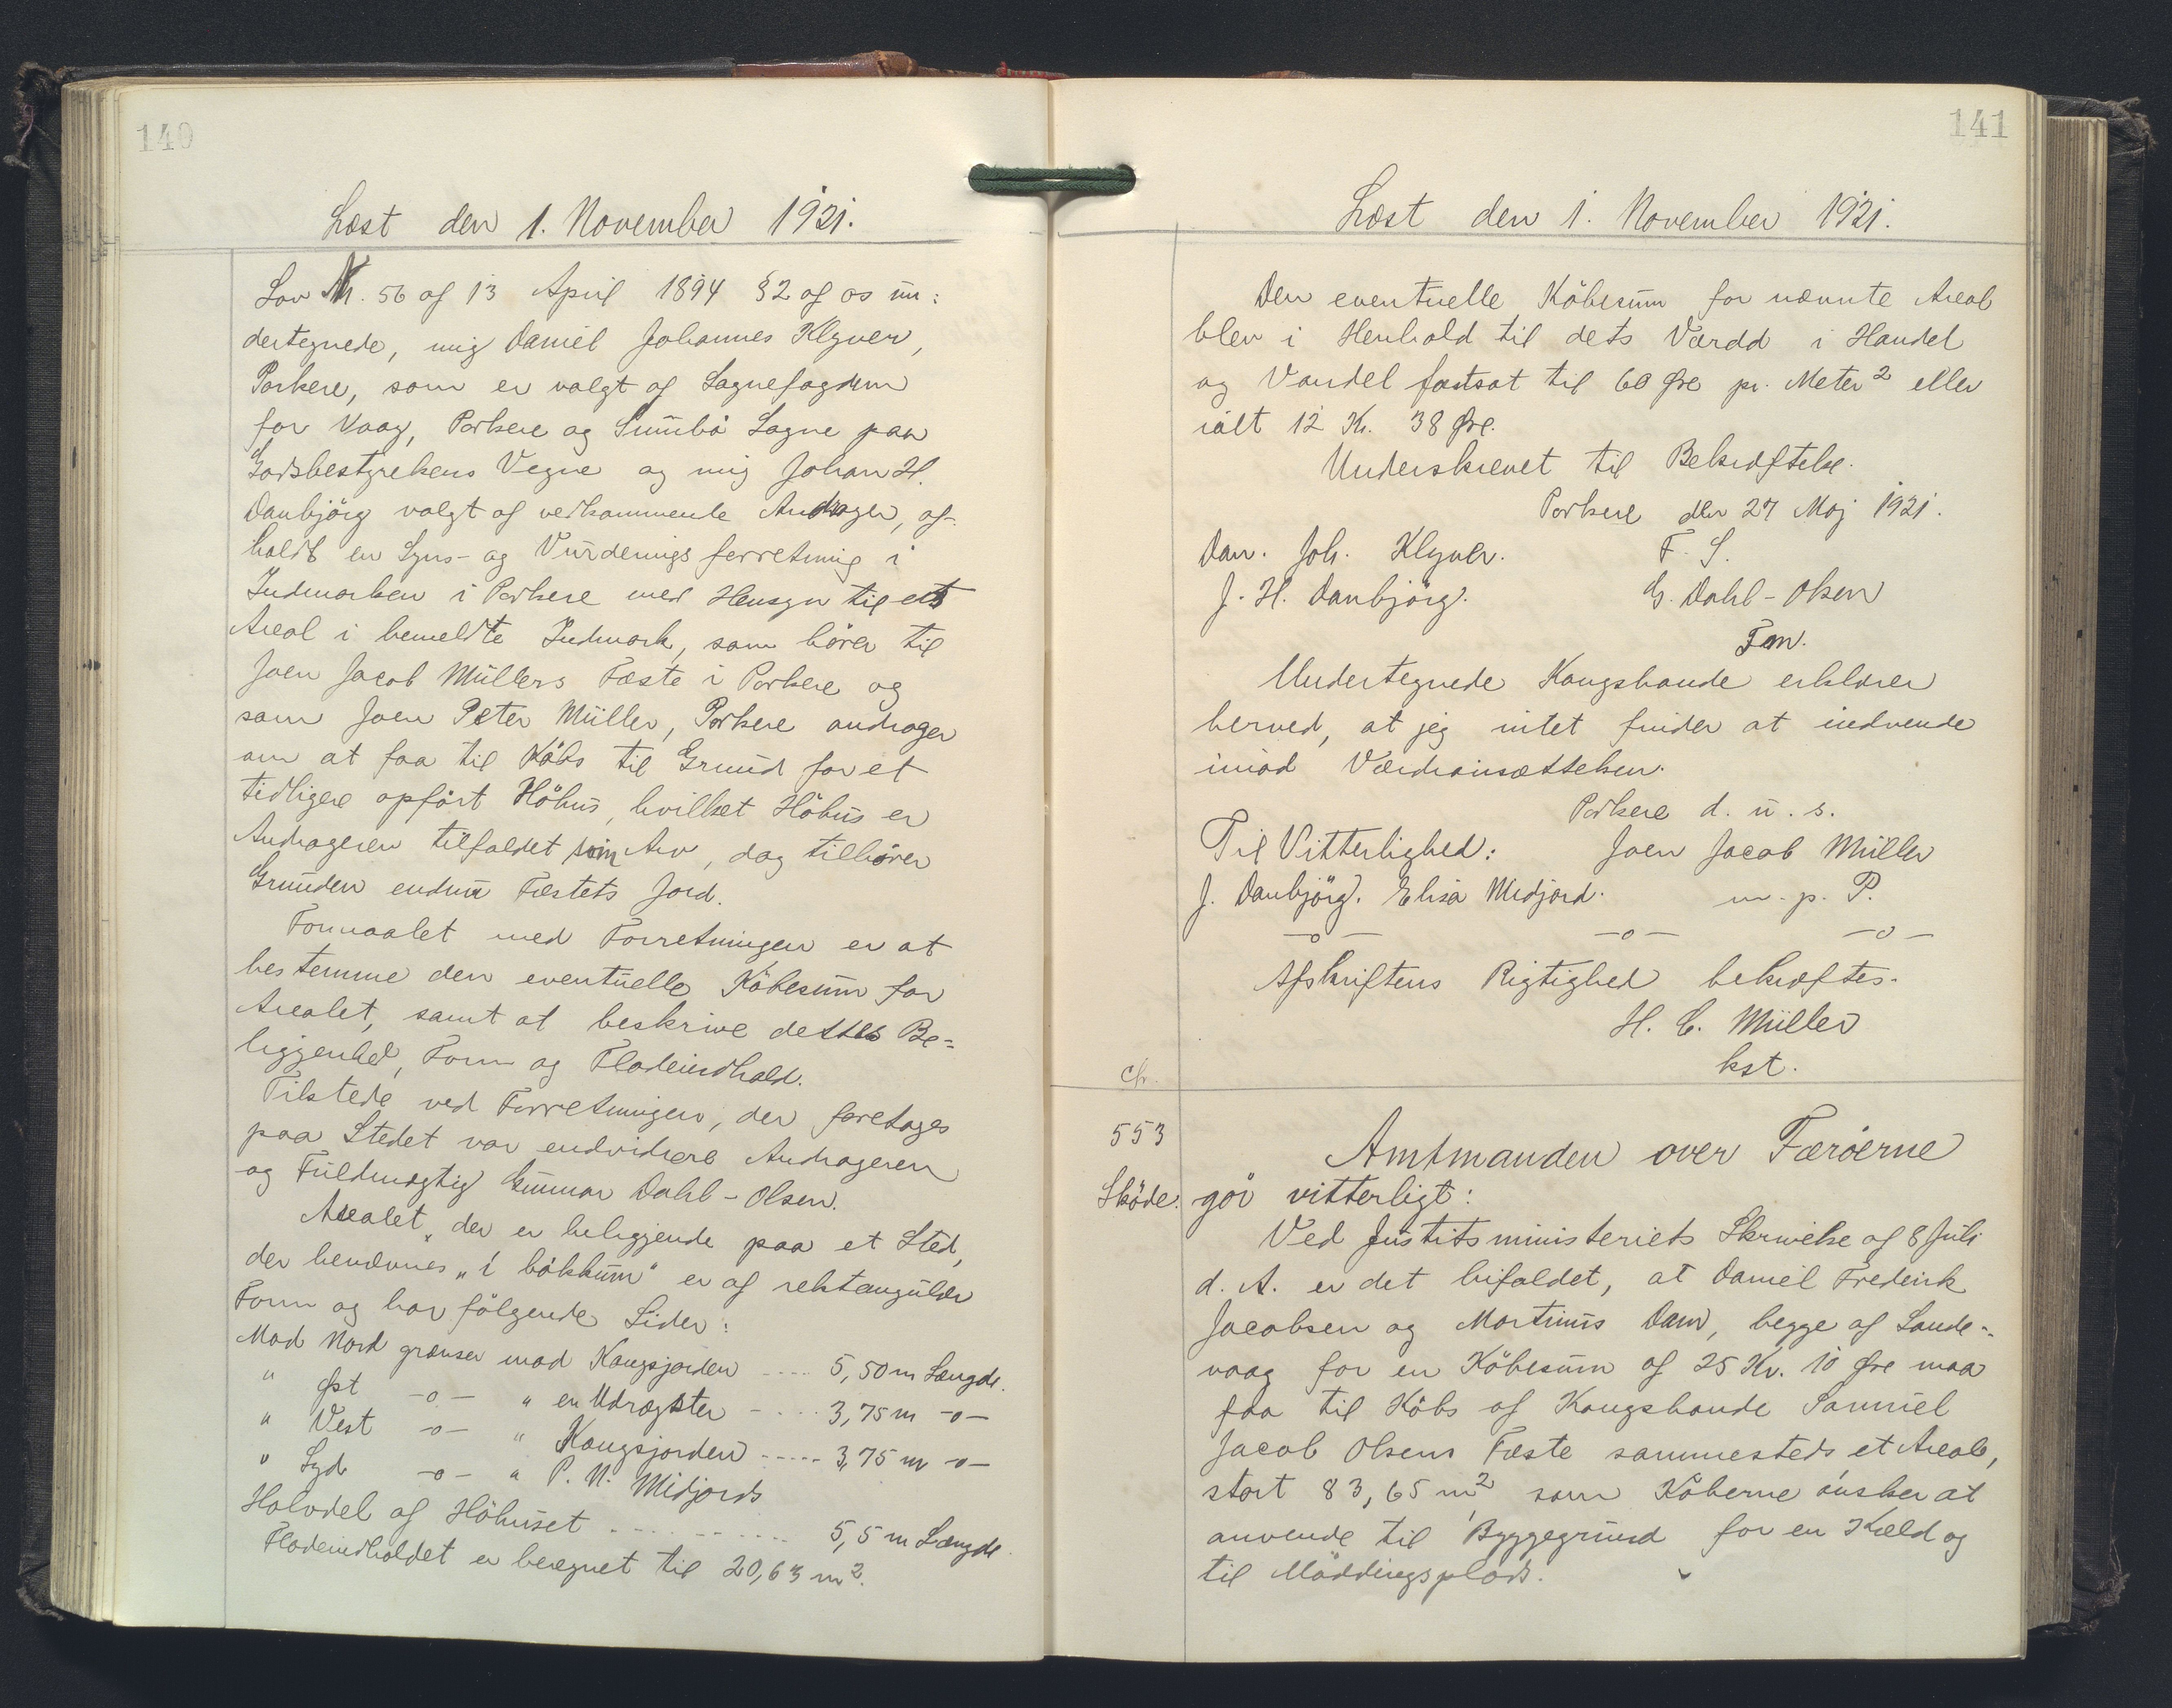 140
Læst den 1. November 1921.
Lov Nr. 56 af 13 April 1894 § 2 af os un:
dertegnede, mig Daniel Johannes Klyver,
Porkere, som er valgt af Sognefogden
for Vaag, Porkere og Sumbø Sogne paa
Godsbestyrelsens Vegne og mig Johan H.
Danbjörg valgt af vedkommende Andrager, af-
holdt en Syns- og Vurderingsforretning i
Indmarken i Porkere med Hensyn til et
Areal i bemeldte Indmark, som hörer til
Joen Jacob Müllers Fæste i Porkere og
som Joen Peter Müller, Porkere andrager
om at faa til Köbs til Grund for et
tidligere opfört Höhus, hvilket Höhus er
Andrageren tilfaldet som Arv, dog tilhörer
Grunden endnu Fæstets Jord.
Formaalet med Forretningen er at
bestemme den eventuelle Köbesum for
Arealet, samt at beskrive dettes Be=
liggenhed, Form og Fladeindhold.
Tilstede ved Forretningen, der foretages
paa Stedet var endvidere Andrageren
og Fuldmægtig Gunnar Dahl-Olsen.
Arealet, der er beliggende paa et Sted,
der benævnes „í bökkum“ er af rektangulær
Form og har fölgende Sider:
Mod Nord grænser mod Kongsjorden ---- 5,50 m Længde.
" Øst -o- " en Udrøgster - --- 3,75 m -o-
" Vest -o- " Kongsjorden ----- 3,75 m -o-
" Syd -o- " P. N. Midjords
Halvdel af Höhuset ---------- 5,5 m Længde.
Fladeindholdet er beregnet til 20,63 m².
141
Læst den 1. November 1921.
Den eventuelle Köbesum for nævnte Areal
blev i Henhold til dets Værdd i Handel
og Vandel fastsat til 60 Øre pr. Meter² eller
ialt 12 Kr. 38 Øre.
Underskrevet til Bekræftelse.
Porkere den 27 Maj 1921.
Dan. Joh. Klyver. F. S.
J. H. Danbjörg. G. Dahl-Olsen
Fm.
Undertegnede Kongsbonde erklærer
herved, at jeg intet finder at indvende
imod Værdiansættelsen.
Porkere d. u. s.
Til Vitterlighed: Joen Jacob Müller
J. Danbjörg. Elisa Midjord. m. p. P.
-o- -o- -o-
Afskriftens Rigtighed bekræftes.
H. C. Müller
kst.
Ch.
553
Amtmanden over Færöerne
Sköde. gör vitterligt:
Ved Justitsministeriets Skrivelse af 8 Juli
d. A. er det bifaldet, at Daniel Frederik
Jacobsen og Mortinus Dam, begge af Sande-
vaag for en Köbesum af 25 Kr. 10 Øre maa
faa til Köbs af Kongsbonde Samuel
Jacob Olsens Fæste sammesteds et Areal,
stort 83,65 m² som Köberne önsker at
anvende til Byggegrund for en Kæld og
til Möddingsplads.